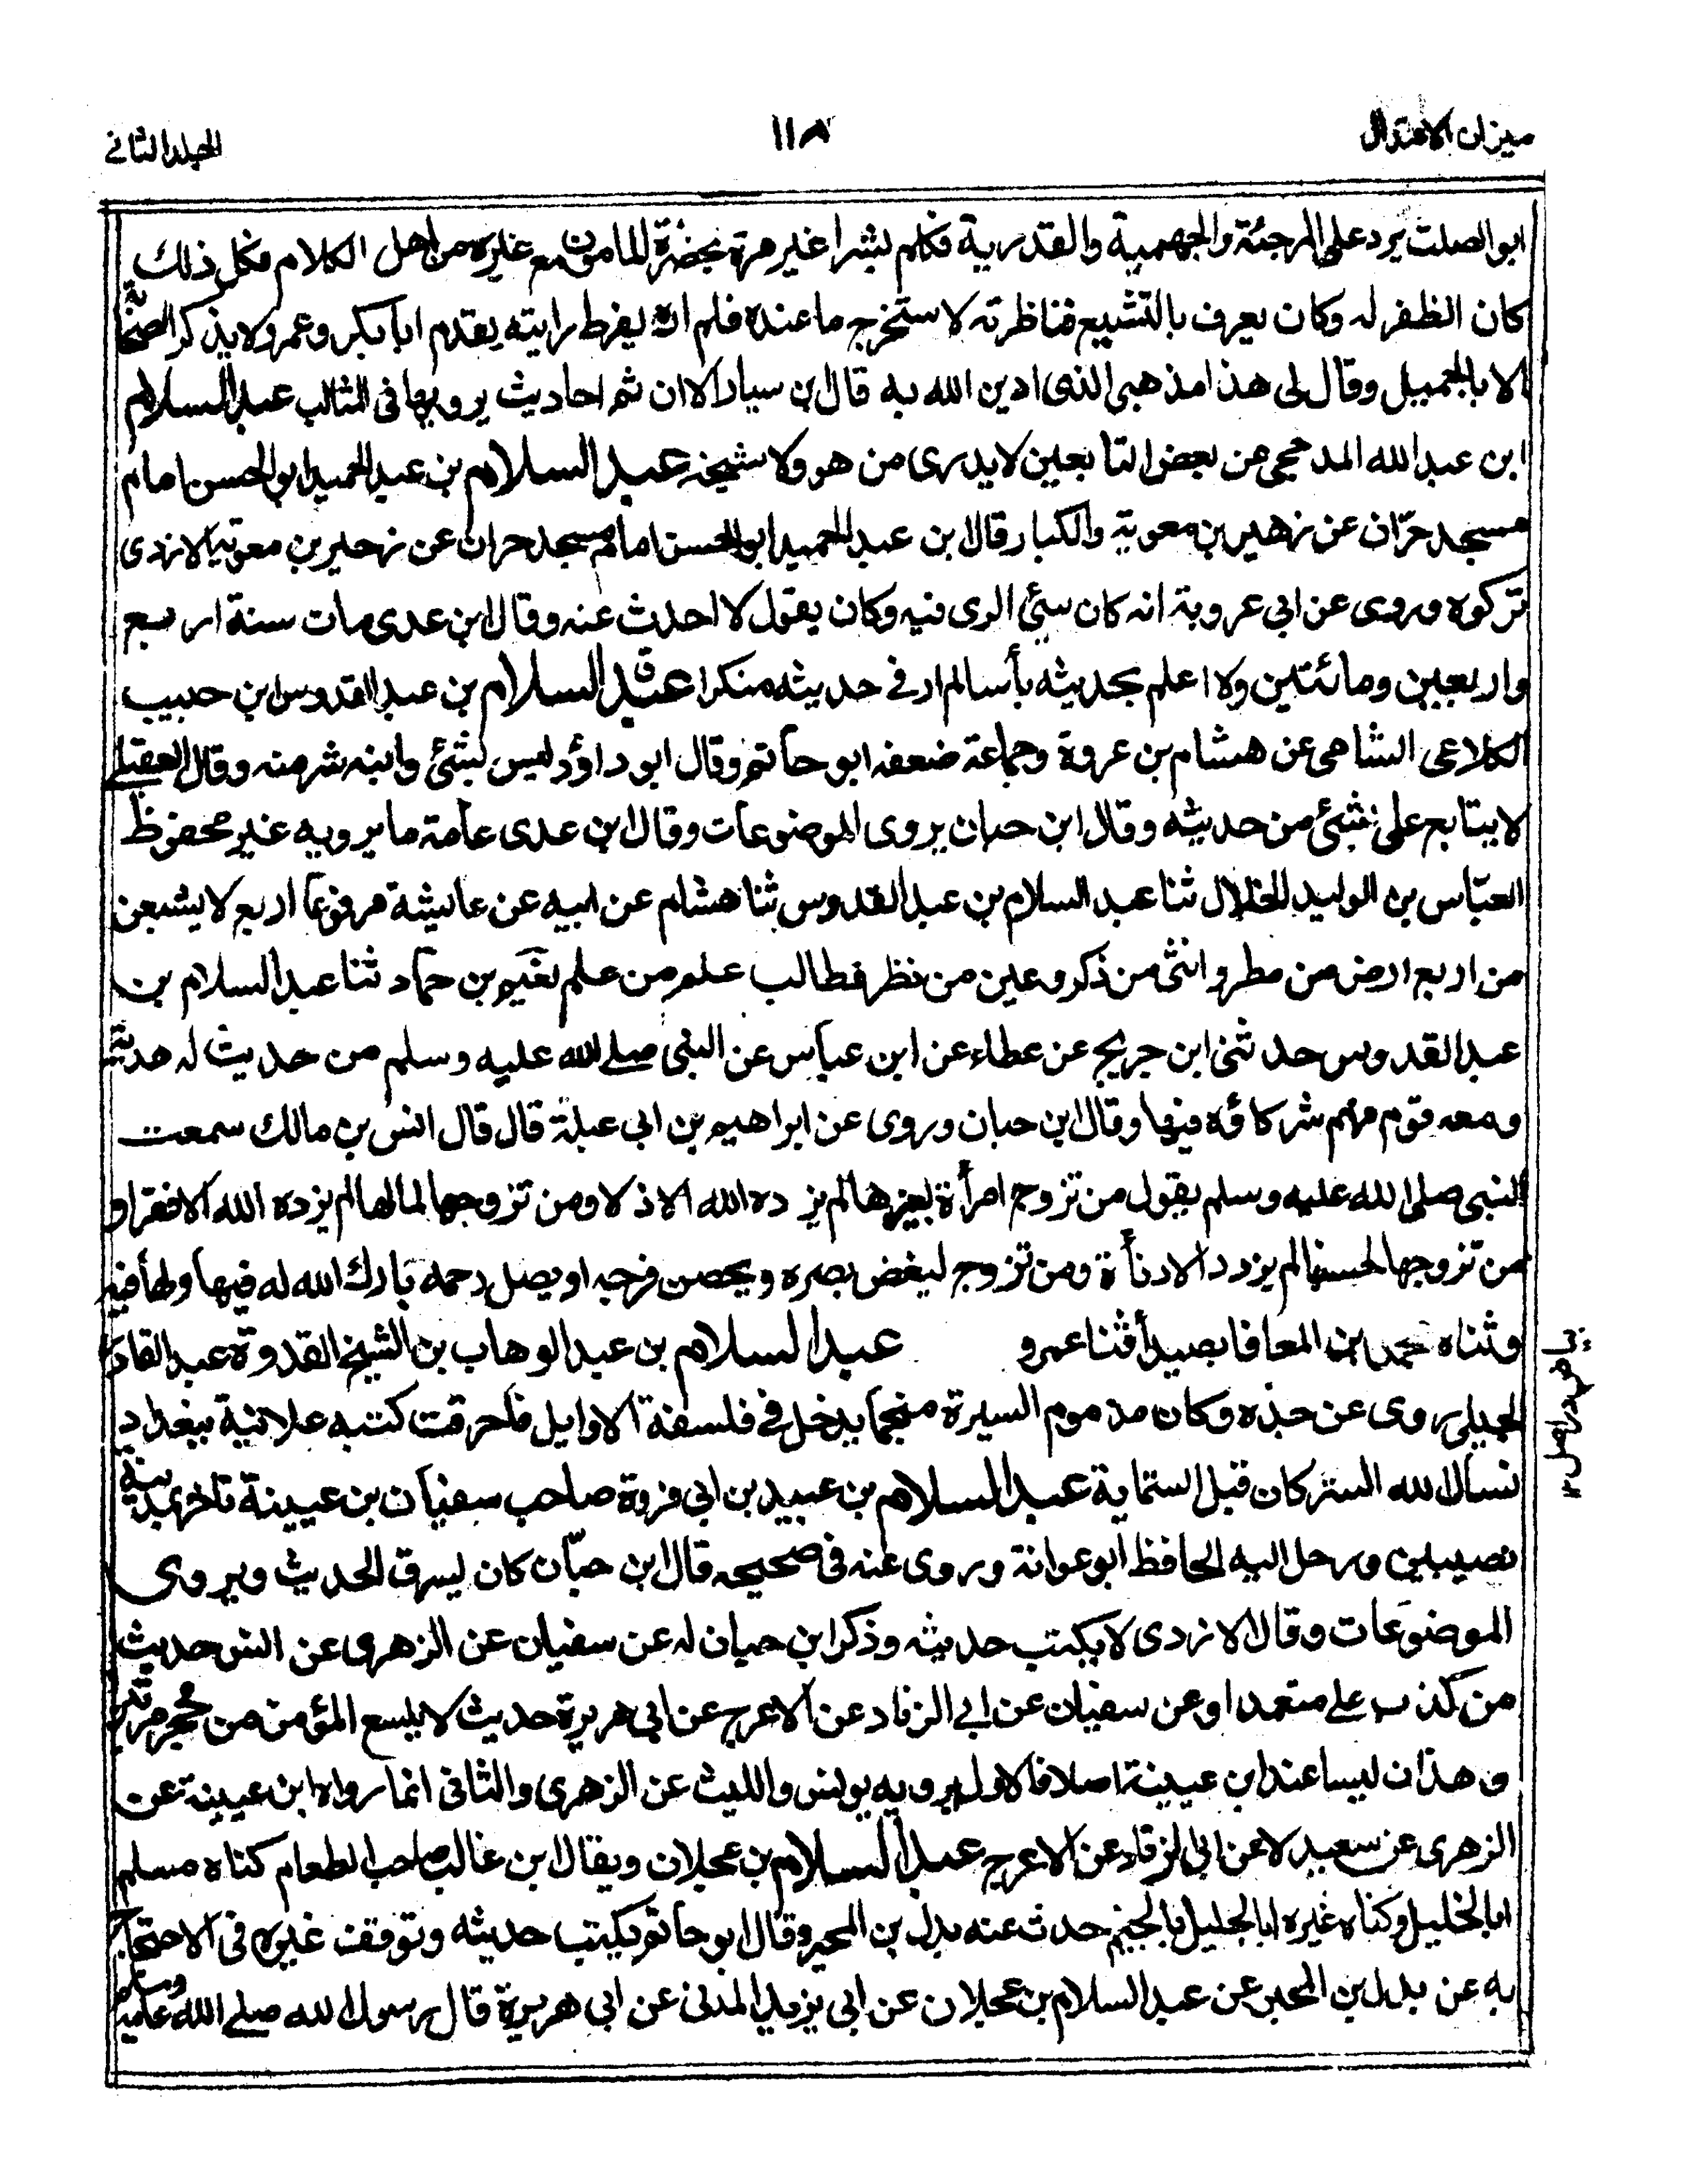 ميزان الاعتدال
١١٨
الجلد الثاني
ابو الصلت يرد على المرجئة والجهمية والقدرية فكلم بشرا غير مرة بحضرة المامون مع غيره من اهل الكلام فكل ذلك
كان الظفر له وكان يعرف بالتشيع فناظرته لاستخرج ما عنده فلم اره يفرط رايته يقدم ابا بكر وعمر ولا يذكر الصحابة
الا بالجميل وقال لى هذا مذهبي الذى ادين الله به قال ابن سيار الا ان ثم احاديث يرويها فى المثالب عبد السلام
ابن عبد الله المذحجي عن بعض التابعين لا يدرى من هو ولا شيخه عبد السلام بن عبد الحميد ابو الحسن امام
مسجد حرّان عن زهير بن معوية والكبار قال ابن عبد الحميد ابو الحسن امام مسجد حران عن زهير بن معوية الازدى
تركوه وروى عن ابي عروبة انه كان سئ الرى فيه وكان يقول لا احدث عنه وقال ابن عدى مات سنة اربع
واربعين ومائتين ولا اعلم بحديثه بأسا لم ار في حديثه منكرا عبد السلام بن عبد القدوس ابن حبيب
الكلاعى الشامى عن هشام بن عروة وجماعة ضعفه ابو حاتم وقال ابو داؤد ليس بشئ وابنه شر منه وقال العقيلے
لا يتابع على شئ من حديثه وقال ابن حبان يروى الموضوعات وقال ابن عدى عامة ما يرويه غير محفوظ
العبّاس بن الوليد الخلال ثنا عبد السلام بن عبد القدوس ثنا هشام عن ابيه عن عايشة مرفوعا اربع لا يشبعن
من اربع ارض من مطر وانثى من ذكر وعين من نظر وطالب علم من علم نعيم بن حماد ثنا عبد السلام بن
عبد القدوس حدثنى ابن جريج عن عطاء عن ابن عباس عن النبى صلے الله عليه وسلم من حديث له هدية
ومعه قوم فهم شركاؤه فيها وقال ابن حبان وروى عن ابراهيم بن ابى عبلة قال قال انس بن مالك سمعت
النبى صلى الله عليه وسلم يقول من تزوج امرأة لعزها لم يزده الله الا ذلا ومن تزوجها لمالها لم يزده الله الا فقرا و
من تزوجها لحسنها لم يزدد الا دنأة ومن تزوج ليغض بصره ويحصن فرجه او يصل رحمه بارك الله له فيها ولها فيه
وثناه محمد ابن المعافا بصيدأ ثنا عمرو عبد السلام بن عبد الوهاب بن الشيخ القدوة عبد القادر
الجيلى روى عن جده وكان مذموم السيرة منجما يدخل في فلسفة الاوايل فاحرقت كتبه علانية ببغداد
نسال الله الستر كان قبل الستماية عبد السلام بن عبيد بن ابى فروة صاحب سفيان بن عيينة تاخر بمدينة
نصيبين ورحل اليه الحافظ ابو عوانة وروى عنه فى صحيحه قال ابن حبّان كان يسرق الحديث ويروى
الموضوعات وقال الازدى لا يكتب حديثه وذكر ابن حبان له عن سفيان عن الزهرى عن انس حديث
من كذب على متعمدا وعن سفيان عن ابي الزناد عن الاعرج عن ابى هريرة حديث لا يلسع المؤمن من جحر مرتين
وهذان ليسا عند ابن عيينة اصلا فالاول يرويه يونس والليث عن الزهرى والثانى انما رواه ابن عيينة عن
الزهرى عن سعيد لا عن ابى الزناد عن الاعرج عبد السلام بن عجلان ويقال ابن غالب صاحب الطعام كناه مسلم
ابا الخليل وكناه غيره ابا الجليل بالجيم حدث عنه بدل بن المحبر وقال ابو حاتم يكتب حديثه وتوقف غيره فى الاحتجاج
به عن بدل بن المحبر عن عبد السلام بن عجلان عن ابى يزيد المدنى عن ابى هريرة قال رسول الله صلے الله عليه وسلم